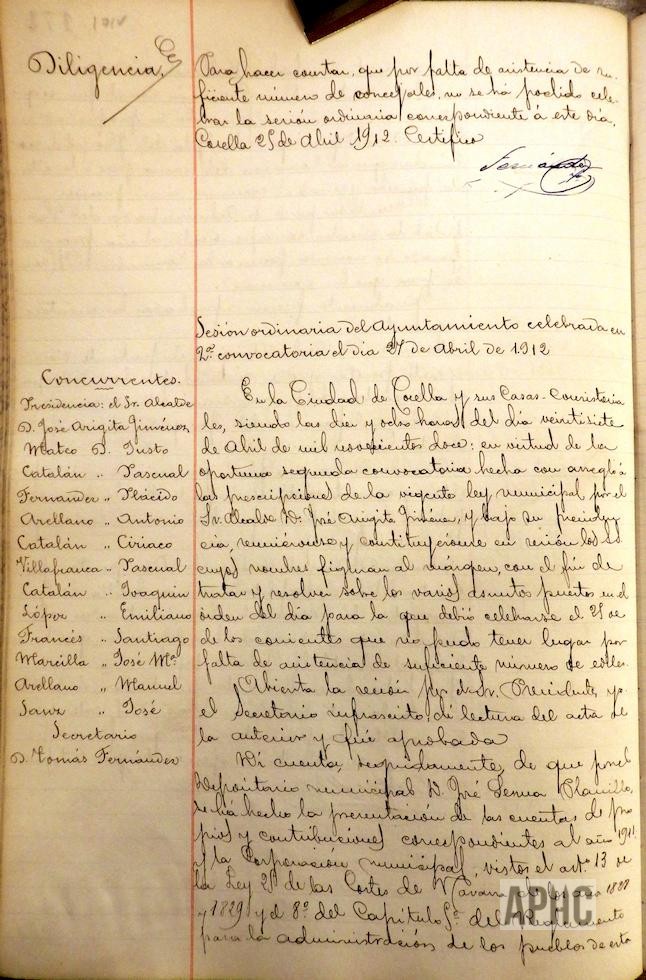 Diligencia.
Para hacer constar, que por falta de asistencia de su-
ficiente número de concejales, no se há podido cele-
brar la sesión ordinaria correspondiente á este dia.
Corella 25 de Abril 1912. Certifico
Fernández
Sesión ordinaria del Ayuntamiento celebrada en
2ª convocatoria el dia 27 de Abril de 1912
Concurrentes.
Presidencia: el Sr. Alcalde
D. José Arigita Jiménez
Mateo D. Justo
Catalán " Pascual
Fernández " Plácido
Arellano " Antonio
Catalán " Ciriaco
Villafranca " Pascual
Catalán " Joaquin
López " Emiliano
Francés " Santiago
Marcilla " José Mª
Arellano " Manuel
Sanz " José
Secretario
D. Tomás Fernández
En la Ciudad de Corella y sus Casas-Consistoria
les, siendo las diez y ocho horas del dia veintisiete
de Abril de mil novecientos doce: en virtud de la
oportuna segunda convocatoria hecha con arreglo á
las prescripciones de la vigente ley municipal por el
Sr. Alcalde D. José Arigita Jiménez, y bajo su presiden-
cia, reuniéronse y constituyéronse en sesión los se
cuyos nombres figuran al margen, con el fin de
tratar y resolver sobre los varios asuntos puestos en el
órden del dia para la que debió celebrarse el 25 de
de los corrientes que no pudo tener lugar por
falta de asistencia de suficiente número de ediles.
Abierta la sesión por el Sr. Presidente, yo
el Secretario infrascrito, dí lectura del acta de
la anterior y fué aprobada
Dí cuenta, seguidamente, de que por el
Depositario municipal D. José
se há hecho la presentación de las cuentas de pro
pios y contribuciones correspondientes al año 1911
y la Corporación municipal, vistos el artº 13 de
la Ley 25 de las Cortes de Navarra de los años 1828
y 1829 y el 8º del Capitulo 5º del Reglamento
para la administración de los pueblos de esta
APHC